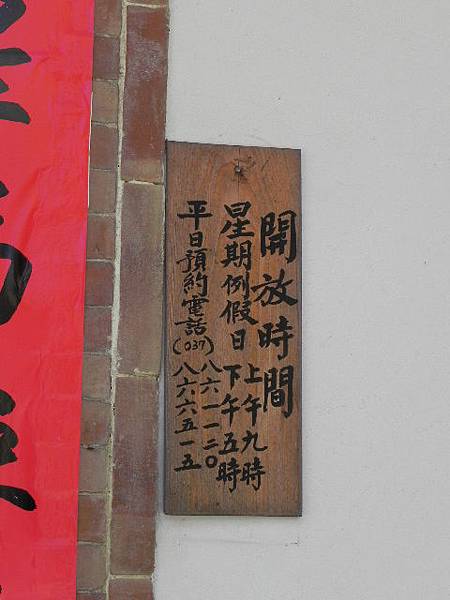 開放時間
星期例假日
上午九時
下午五時
平日預約電話(037)
八六一一二〇
八六六五一五